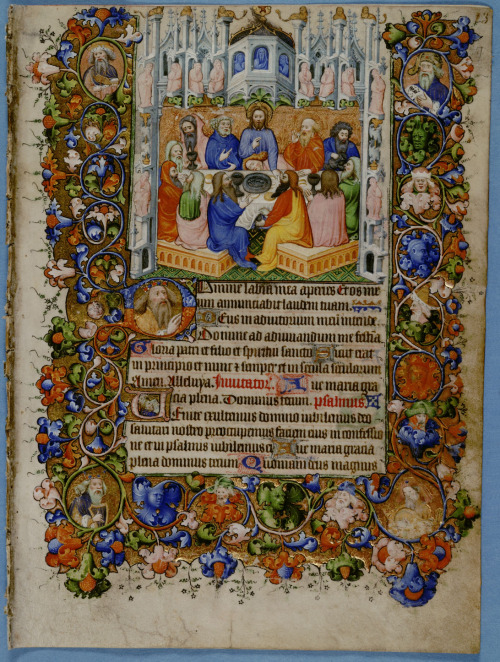 Domine labia mea aperies Et os me
um annunciabit laudem tuam
Deus in adiutorium meum intende
Domine ad adiuvandum me festina
Gloria patri et filio et spiritui sancto Sicut erat
in principio et nunc et semper et in secula seculorum
Amen. Alleluya. Invitator. Ave maria gra
cia plena. Dominus tecum psalmus.
Venite exultemus domino iubilemus deo
salutari nostro preoccupemus faciem eius in confessio
ne et in psalmis iubilemus ei Ave maria gracia
plena dominus tecum Quoniam deus magnus